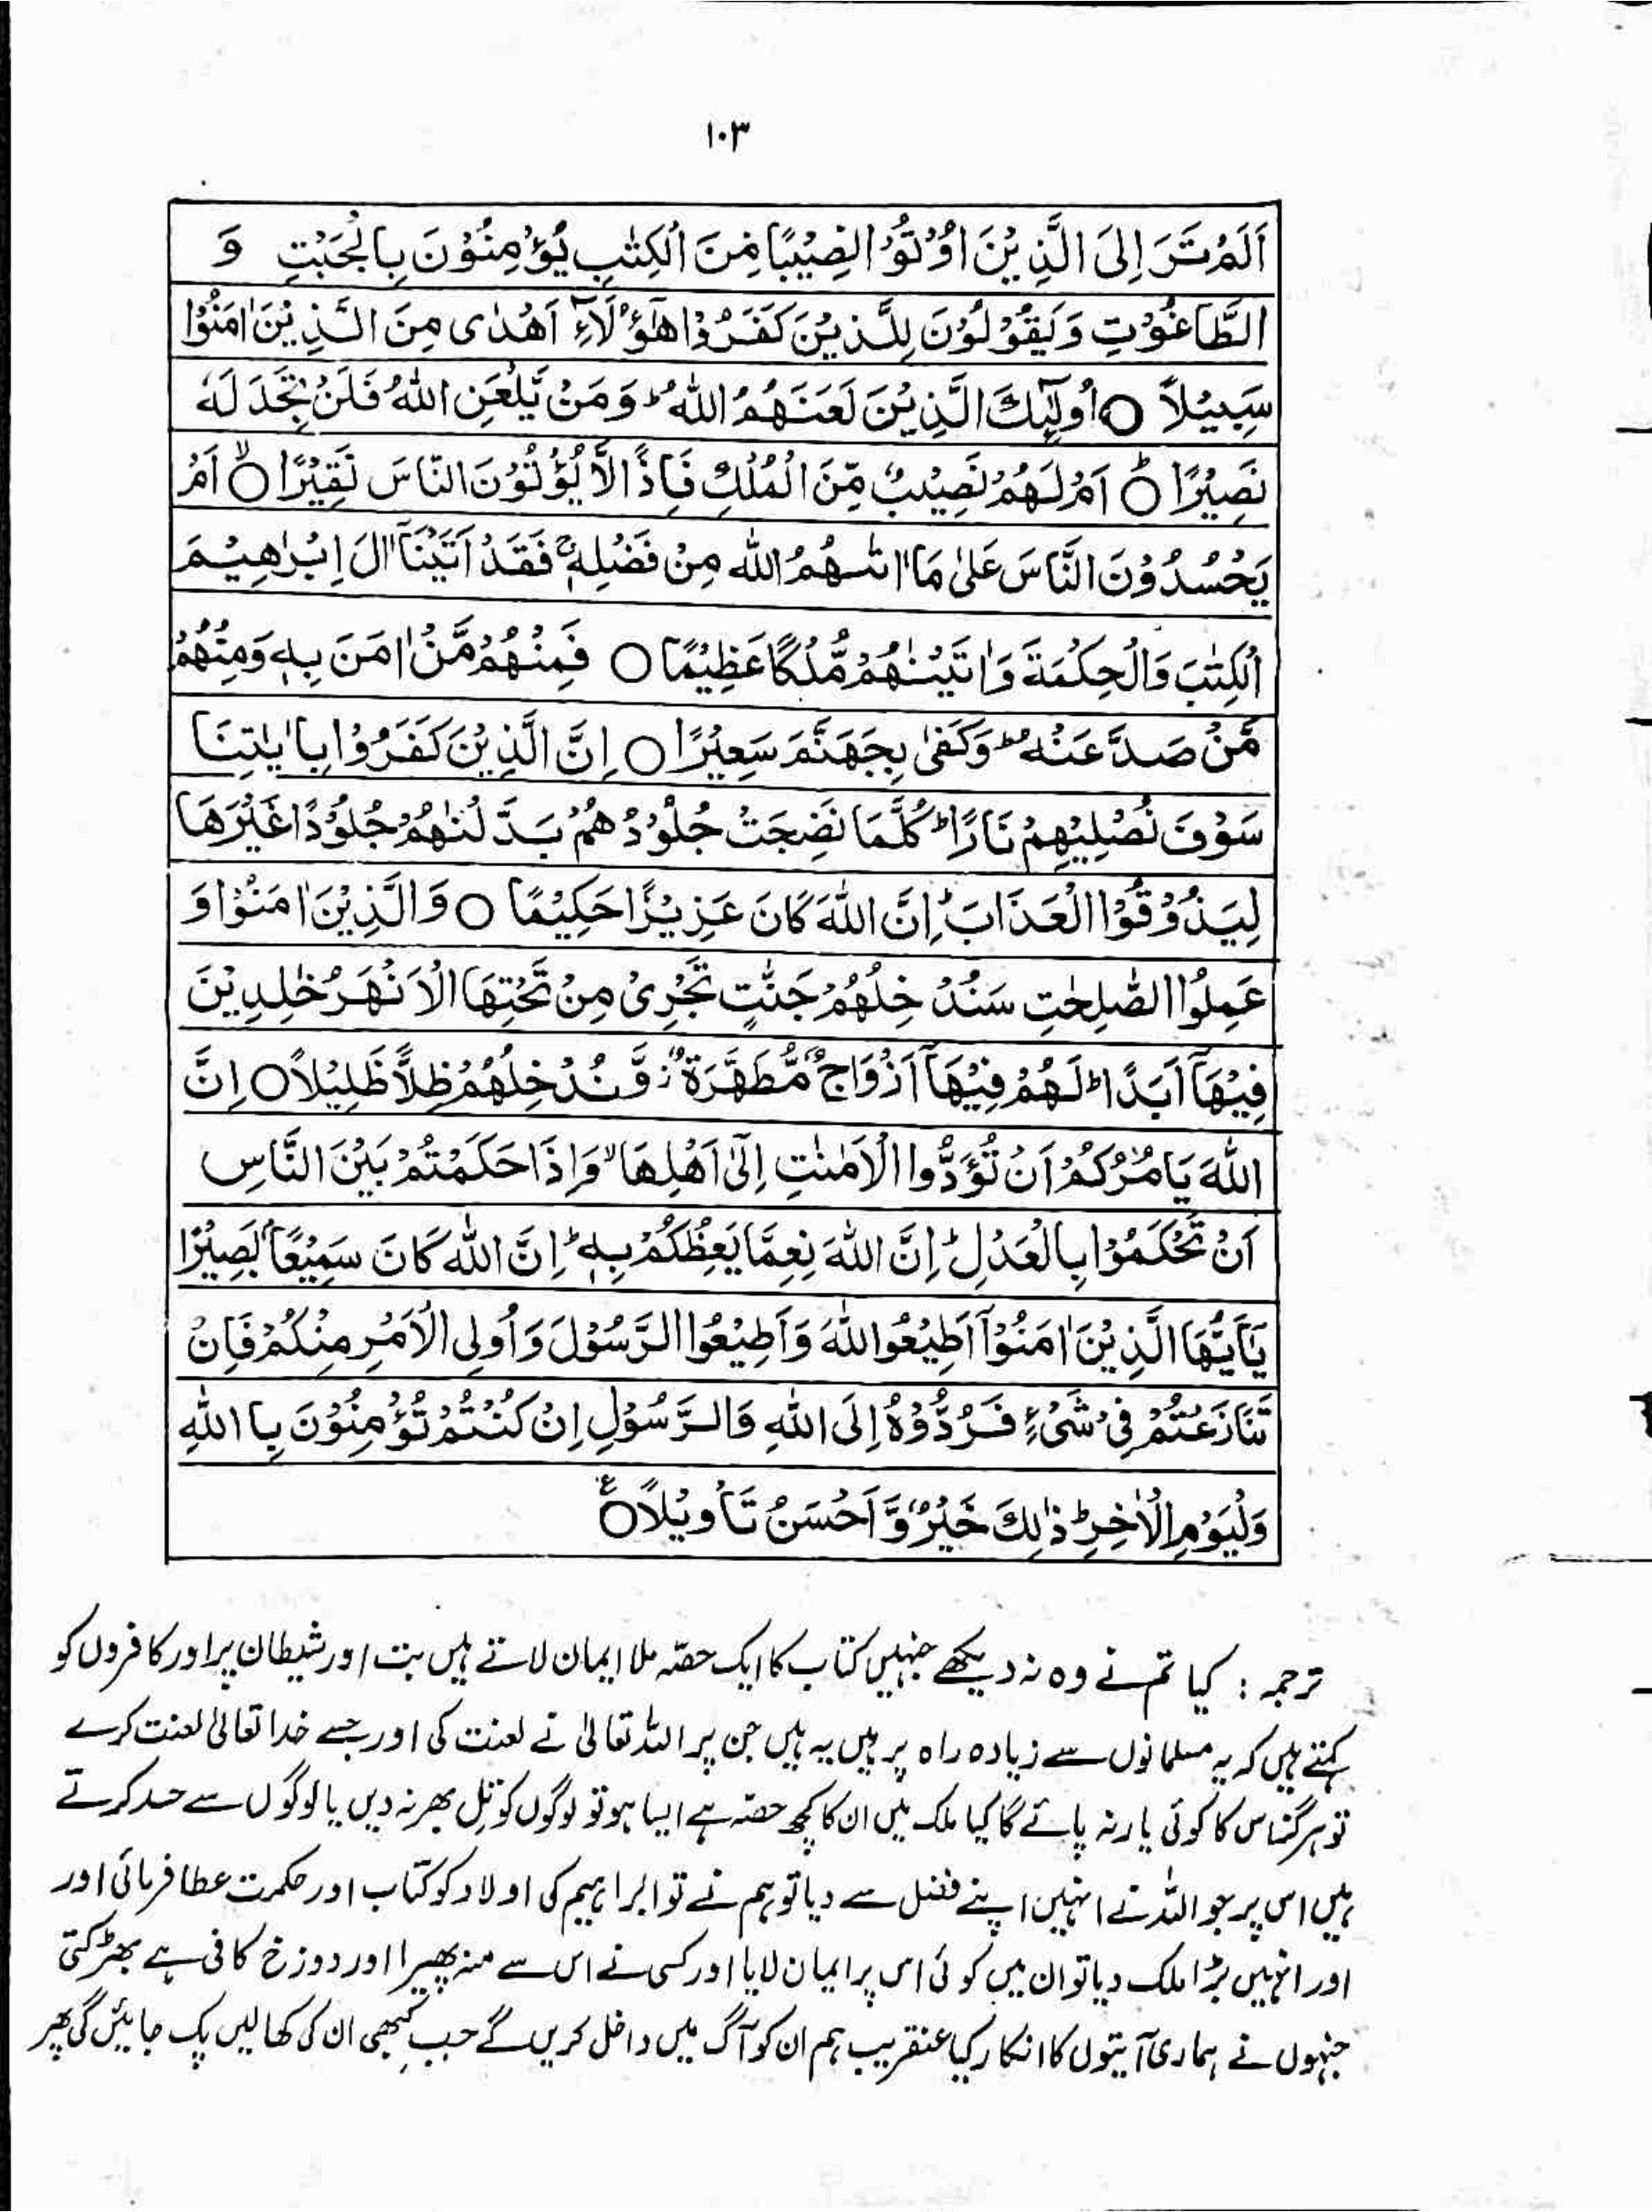 ۱۰۳
اَلَمْ تَرَ اِلَى الَّذِيْنَ اُوْتُوْا نَصِيْبًا مِّنَ الْكِتٰبِ يُؤْمِنُوْنَ بِالْجِبْتِ وَ
الطَّاغُوْتِ وَيَقُوْلُوْنَ لِلَّذِيْنَ كَفَرُوْا هٰٓؤُلَآءِ اَهْدٰى مِنَ الَّذِيْنَ اٰمَنُوْا
سَبِيْلًا ○ اُولٰٓئِكَ الَّذِيْنَ لَعَنَهُمُ اللّٰهُ ؕ وَمَنْ يَّلْعَنِ اللّٰهُ فَلَنْ تَجِدَ لَهٗ
نَصِيْرًا ○ؕ اَمْ لَهُمْ نَصِيْبٌ مِّنَ الْمُلْكِ فَاِذًا لَّا يُؤْتُوْنَ النَّاسَ نَقِيْرًا ○ۙ اَمْ
يَحْسُدُوْنَ النَّاسَ عَلٰى مَا اٰتٰىهُمُ اللّٰهُ مِنْ فَضْلِهٖ ۚ فَقَدْ اٰتَيْنَآ اٰلَ اِبْرٰهِيْمَ
الْكِتٰبَ وَالْحِكْمَةَ وَاٰتَيْنٰهُمْ مُّلْكًا عَظِيْمًا ○ فَمِنْهُمْ مَّنْ اٰمَنَ بِهٖ وَمِنْهُمْ
مَّنْ صَدَّ عَنْهُ ؕ وَكَفٰى بِجَهَنَّمَ سَعِيْرًا ○ اِنَّ الَّذِيْنَ كَفَرُوْا بِاٰيٰتِنَا
سَوْفَ نُصْلِيْهِمْ نَارًا ؕ كُلَّمَا نَضِجَتْ جُلُوْدُهُمْ بَدَّلْنٰهُمْ جُلُوْدًا غَيْرَهَا
لِيَذُوْقُوا الْعَذَابَ ؕ اِنَّ اللّٰهَ كَانَ عَزِيْزًا حَكِيْمًا ○ وَالَّذِيْنَ اٰمَنُوْا وَ
عَمِلُوا الصّٰلِحٰتِ سَنُدْخِلُهُمْ جَنّٰتٍ تَجْرِىْ مِنْ تَحْتِهَا الْاَنْهٰرُ خٰلِدِيْنَ
فِيْهَآ اَبَدًا ؕ لَهُمْ فِيْهَآ اَزْوَاجٌ مُّطَهَّرَةٌ ؗ وَّنُدْخِلُهُمْ ظِلًّا ظَلِيْلًا ○ اِنَّ
اللّٰهَ يَاْمُرُكُمْ اَنْ تُؤَدُّوا الْاَمٰنٰتِ اِلٰٓى اَهْلِهَا ۙ وَاِذَا حَكَمْتُمْ بَيْنَ النَّاسِ
اَنْ تَحْكُمُوْا بِالْعَدْلِ ؕ اِنَّ اللّٰهَ نِعِمَّا يَعِظُكُمْ بِهٖ ؕ اِنَّ اللّٰهَ كَانَ سَمِيْعًا بَصِيْرًا
يَآَيُّهَا الَّذِيْنَ اٰمَنُوْآ اَطِيْعُوا اللّٰهَ وَاَطِيْعُوا الرَّسُوْلَ وَاُولِى الْاَمْرِ مِنْكُمْ فَاِنْ
تَنَازَعْتُمْ فِىْ شَىْءٍ فَرُدُّوْهُ اِلَى اللّٰهِ وَالرَّسُوْلِ اِنْ كُنْتُمْ تُؤْمِنُوْنَ بِا اللّٰهِ
وَلْيَوْمِ الْاٰخِرِ ؕ ذٰلِكَ خَيْرٌ وَّاَحْسَنُ تَاْوِيْلًا ○ع
ترجمہ : کیا تم نے وہ نہ دیکھے جنہیں کتاب کا ایک حصّہ ملا ایمان لاتے ہیں بت اور شیطان پر اور کافروں کو
کہتے ہیں کہ یہ مسلمانوں سے زیادہ راہ پر ہیں یہ ہیں جن پر اللہ تعالیٰ نے لعنت کی اور جسے خدا تعالیٰ لعنت کرے
تو ہرگز اس کا کوئی یار نہ پائے گا کیا ملک میں ان کا کچھ حصّہ ہے ایسا ہو تو لوگوں کو تِل بھر نہ دیں یا لوگوں سے حسد کرتے
ہیں اس پر جو اللہ نے انہیں اپنے فضل سے دیا تو ہم نے تو ابراہیم کی اولاد کو کتاب اور حکمت عطا فرمائی اور
اور انہیں بڑا ملک دیا تو ان میں کوئی اس پر ایمان لایا اور کسی نے اس سے منہ پھیرا اور دوزخ کافی ہے بھڑکتی
جنہوں نے ہماری آیتوں کا انکار کیا عنقریب ہم ان کو آگ میں داخل کریں گے جب کبھی ان کی کھالیں پک جائیں گی پھر